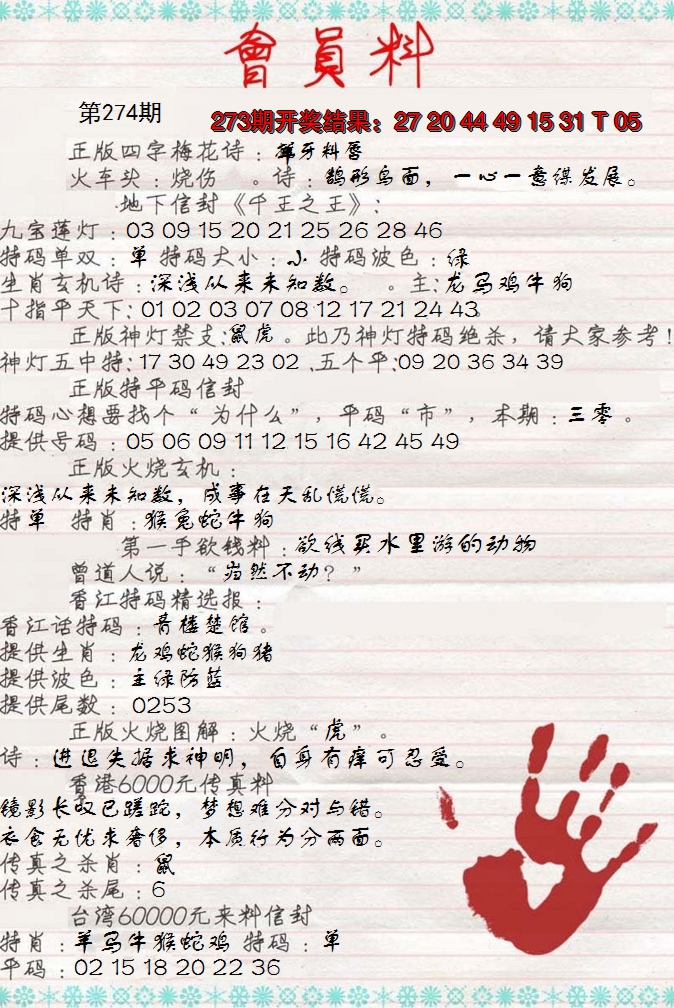 會員料
第274期
273期开奖结果：27 20 44 49 15 31 T 05
正版四字梅花诗：犀牙料唇
火车头：烧伤 。诗：鹄形鸟面，一心一意谋发展。
地下信封《千王之王》：
九宝莲灯：03 09 15 20 21 25 26 28 46
特码单双：单 特码大小：小 特码波色：绿
生肖玄机诗：深浅从来未知数。 。主：龙马鸡牛狗
十指平天下：01 02 03 07 08 12 17 21 24 43
正版神灯禁支：鼠虎。此乃神灯特码绝杀，请大家参考！
神灯五中特：17 30 49 23 02 .五个平：09 20 36 34 39
正版特平码信封
特码心想要找个“为什么”，平码“市”，本期：三零。
提供号码：05 06 09 11 12 15 16 42 45 49
正版火烧玄机：
深浅从来未知数，成事在天乱慌慌。
特单 特肖：猴兔蛇牛狗
第一手欲钱料：欲钱买水里游的动物
曾道人说：“岿然不动？”
香江特码精选报：
香江话特码：青楼楚馆。
提供生肖：龙鸡蛇猴狗猪
提供波色：主绿防蓝
提供尾数：0253
正版火烧图解：火烧“虎”。
诗：进退失据求神明，自身有痒可忍受。
香港6000元传真料
镜影长叹已蹉跎，梦想难分对与错。
衣食无忧求奢侈，本质行为分两面。
传真之杀肖：鼠
传真之杀尾：6
台湾60000元来料信封
特肖：羊马牛猴蛇鸡 特码：单
平码：02 15 18 20 22 36